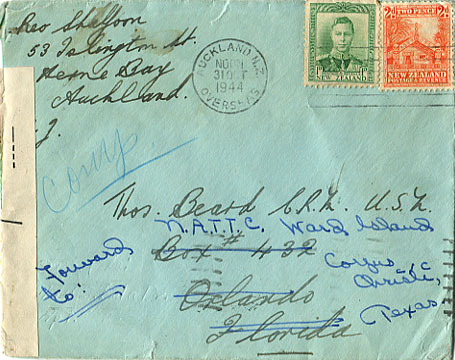 Reo Sheldon
53 Islington St.
Herne Bay
Auckland.
AUCKLAND N.Z.
31 OC T
1944
OVERSEAS
NEW ZEALAND
2d
TWO PENCE
2d
NEW ZEALAND
POSTAGE & REVENUE
Comp.
Thos. Beard C.R.M. U.S.N.
N.A.T.T.C. Ward Island
Box # 432
Corpus Christi,
Orlando
Texas
Florida
Forward
to: